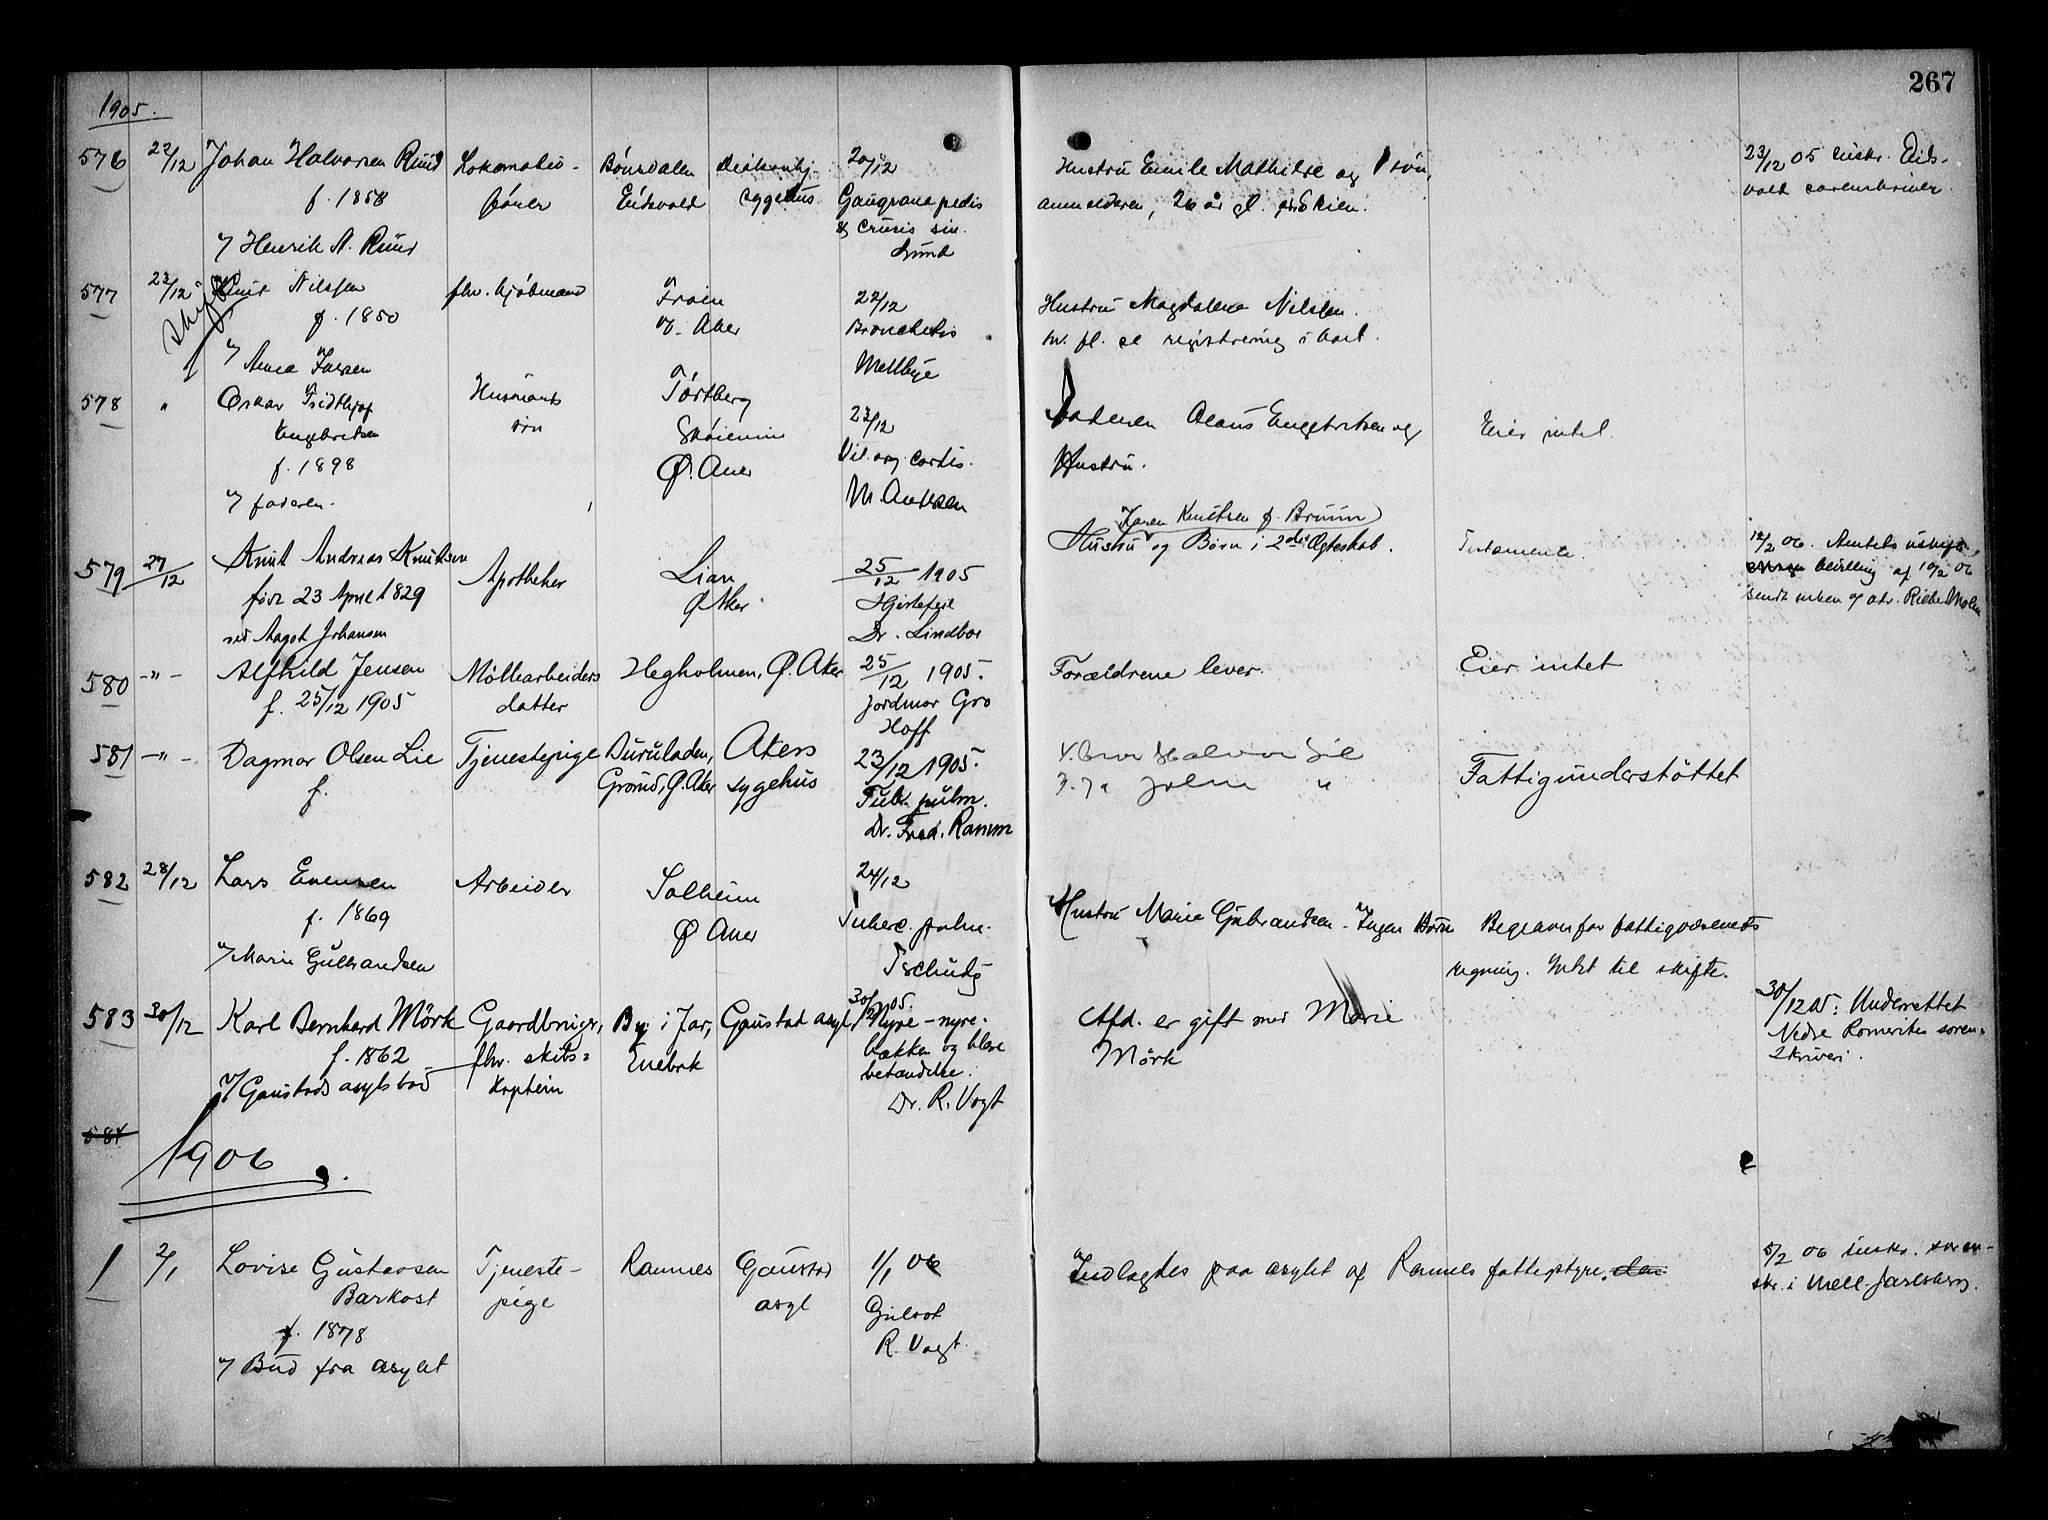 267
1905.
576 22/12 Johan Halvorsen Ruud Lokomotiv- Bönsdalen Diakonhj. 20/12 Hustru Emilie Mathilde og 1 sön, 23/12 05 Eids-
f. 1858 Eidsvold sygehus Gangræna pedis anmelderen, 26 år gl. Skien. vold sorenskriver
v/ Henrik A. Ruud & cruris sin.
Lund
577 23/12 Knut Nilssen fhv. kjöbmand Froen 22/12 Hustru Magdalena Nilssen.
Skifte f. 1850 v. Aker Bronchitis m. fl. se registrering i
v/ Anna Mellbye
578 " Oskar Fridthjof Husmands Törtberg 23/12 Faderen Olaus Engebretsen og Eier intet.
Engebretsen sön Ø. Aker Vit. org. cordis. Hustru.
f. 1898 M. Andersen
v/ faderen.
Karen Knutsen f. Bruun
579 27/12 Knut Andreas Knutsen Apotheker Lian 25/12 1905 Hustru og Børn i 2det Ægteskab. Testamente. 12/2 06. Amtets uskifte-
født 23 April 1829 Ø Aker Hjertefeil bevilling af 10/2 06
ved Aagot Johansen Dr. Lindboe sendt enken v/
580 -"- Alfhild Jensen Möllearbeiders Hegholmen, Ø. Aker 25/12 1905. Forældrene lever. Eier intet
f. 25/12 1905 datter Jordmor Gro
Hoff
581 -"- Dagmar Olsen Lie Tjenestepige Akers 23/12 1905. Halvor Lie Fattigunderstöttet
f. Grorud, Ø. Aker sygehus Tub. pulm. "
Dr. Fred. Ramm
582 28/12 Lars Evensen Arbeider Solheim 24/12 Hustru Marie Gulbrandsen. Ingen Børn Begraves for fattigvæsenets
f. 1869 Ø Aker Tuberc. pulm. regning. Intet til skifte.
v/ Marie Gulbrandsen Tschudy
583 30/12 Karl Bernhard Mörk Gaardbruger, By i Jar, Gaustad asyl 30/12 05. Afd. er gift med Marie 30/12 05: Underrettet
f. 1862 fhv. skibs= Enebak Nyre-nyre- Mörk Nedre Romerikes soren=
v/ Gaustads asyls bud kaptein bækken og blære skriveri.
betændelse.
Dr. R. Vogt
584
1906.
1 2/1 Lovise Gustavsen Tjeneste- Ramnes Gaustad 1/1 06 Indlagdes paa asylet af Ramnes fattigstyre. 5/2 06 soren-
Barkost pige asyl Gulsot skr. i Mell. Jarlsberg.
f. 1878 R. Vogt.
v/ Bud fra asylet